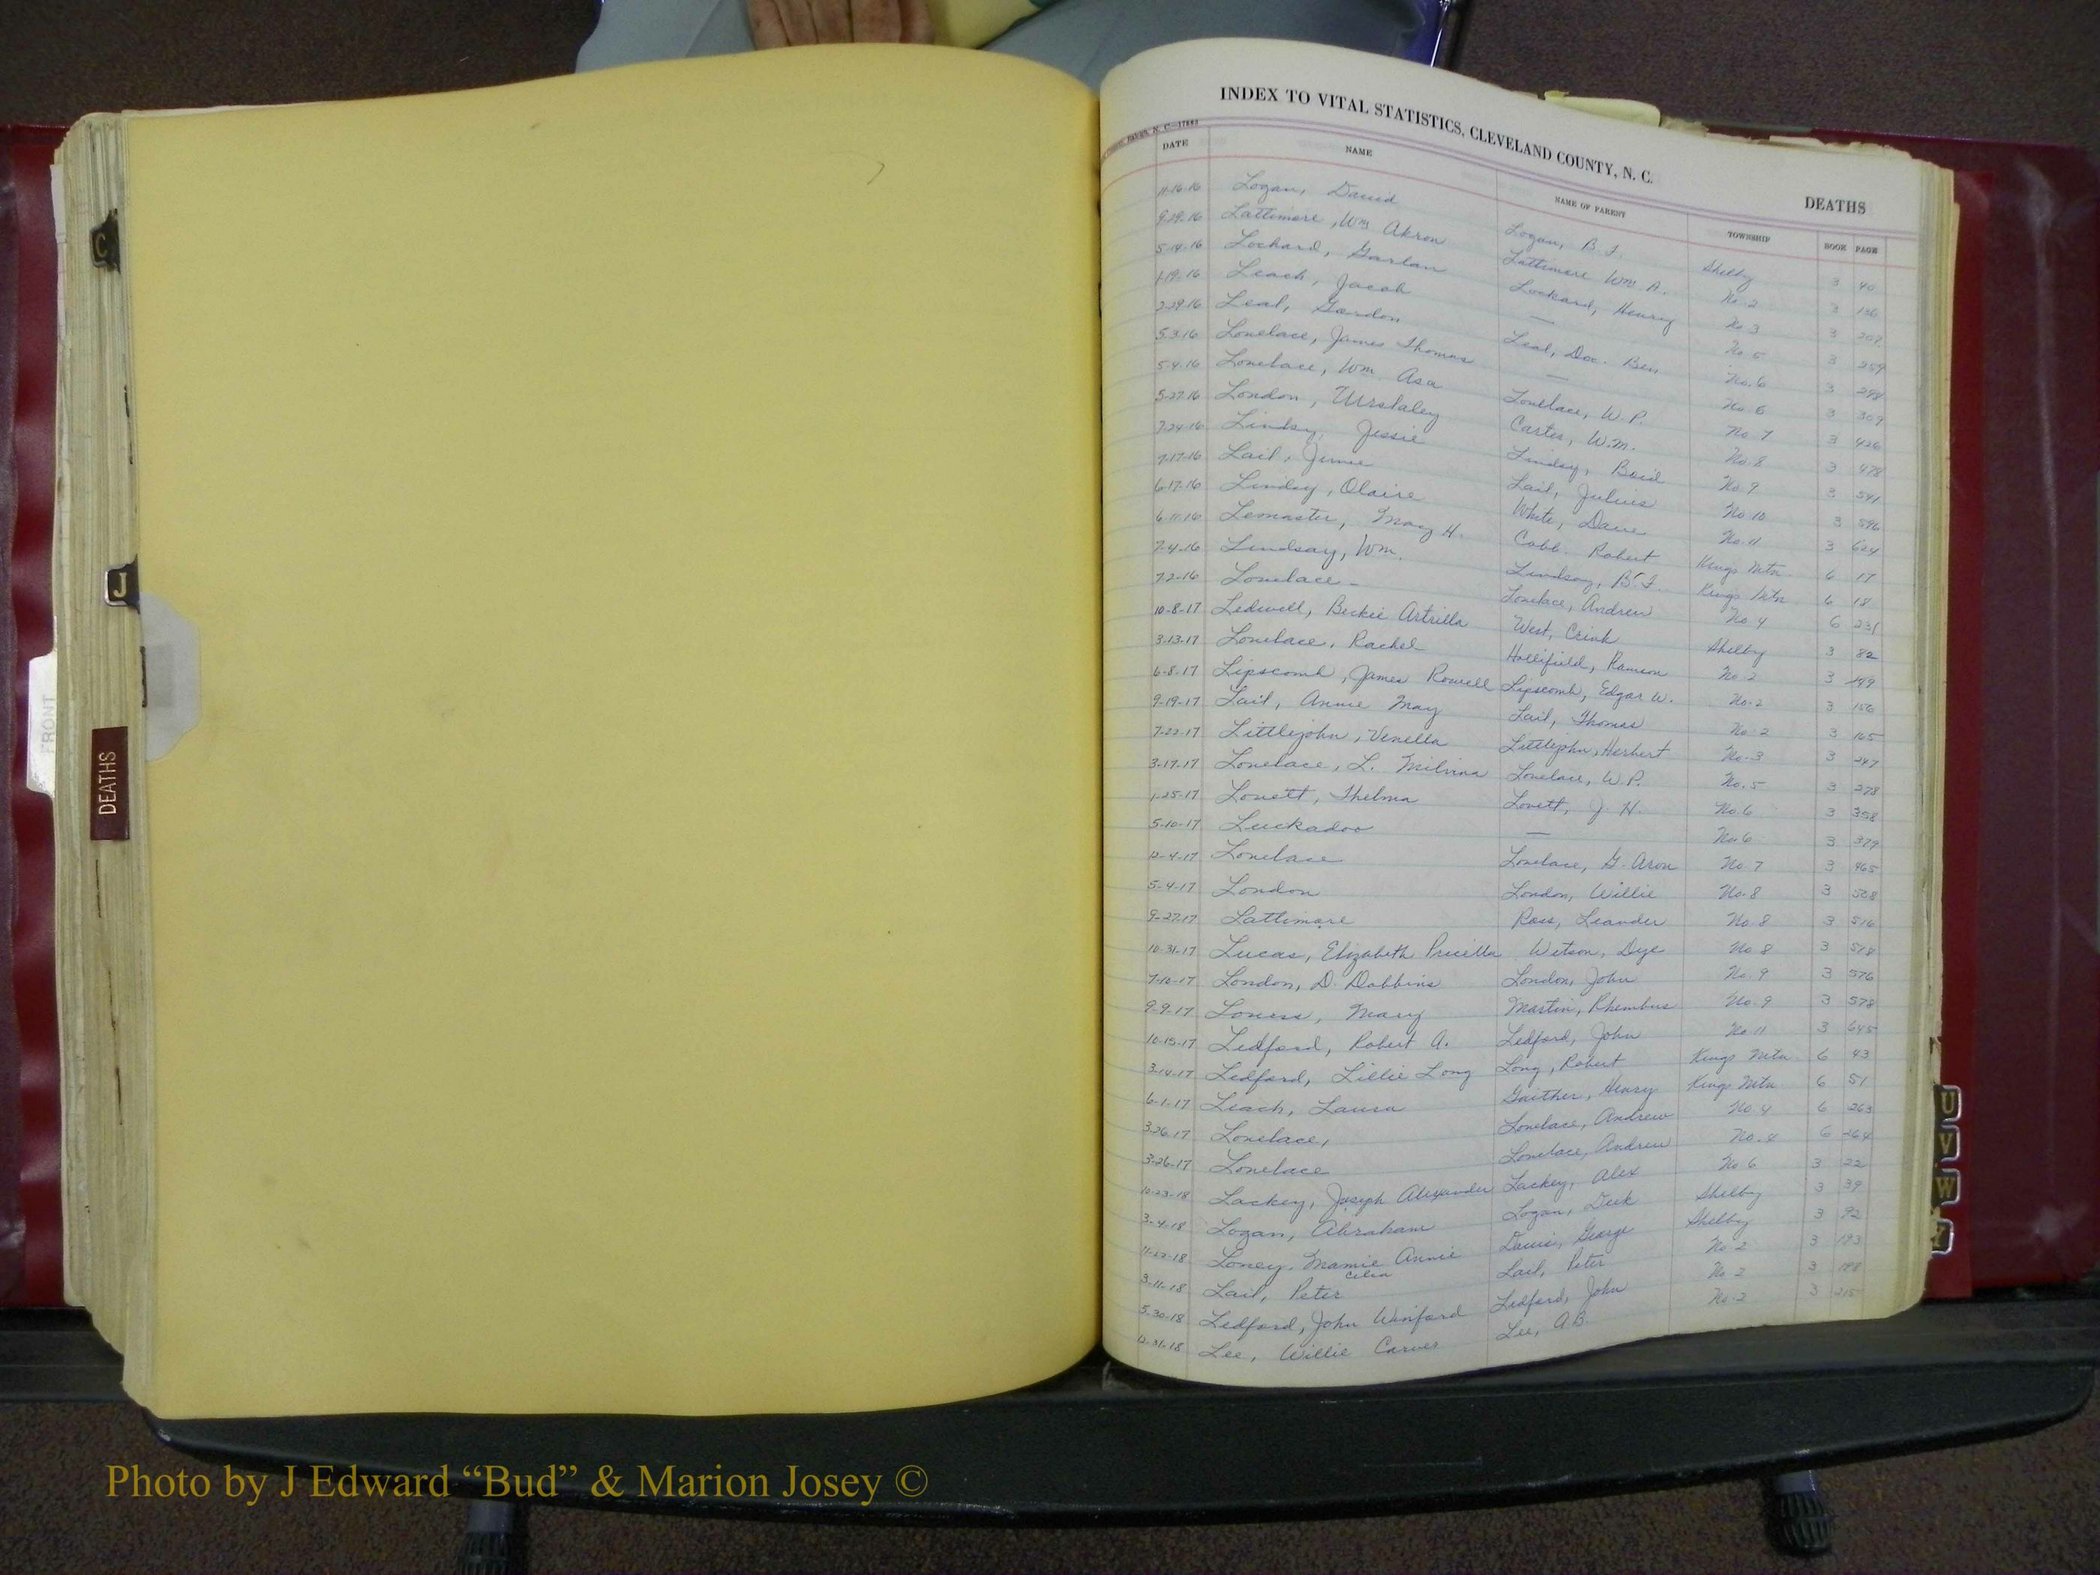 INDEX TO VITAL STATISTICS, CLEVELAND COUNTY, N. C.
DEATHS
DATE NAME NAME OF PARENT TOWNSHIP BOOK PAGE
11-16-16 Logan, David Logan, B. F. Shelby 3 40
9-29-16 Lattimore, Wm Akron Lattimore Wm. A. No. 2 3 136
5-14-16 Lockard, Garlan Lockard, Henry No 3 3 209
1-19-16 Leach, Jacob — No. 5 3 259
2-29-16 Leal, Gordon Leal, Doc. Ben No. 6 3 298
5-3-16 Lovelace, James Thomas — No. 6 3 309
5-4-16 Lovelace, Wm. Asa Lovelace, W. P. No 7 3 426
5-27-16 London, Carter, W. M. No. 8 3 478
7-24-16 Lindsy, Jessie Lindsy, Boid No. 9 3 541
7-17-16 Lail, Lail, Julius No 10 3 596
6-17-16 Lindsy, Olaire White, Dave No. 11 3 624
6-11-16 Lemaster, May H. Cobb. Robert Kings Mtn. 6 17
7-4-16 Lindsay, Wm. Lindsay, B. F. Kings Mtn 6 18
7-2-16 Lovelace - Lovelace, Andrew No. 4 6 231
10-8-17 Ledwell, Beckie Artrilla West, Crink Shelby 3 82
3-13-17 Lovelace, Rachel Hollifield, Ramson No. 2 3 149
6-8-17 Lipscomb, James Rowell Lipscomb, Edgar W. No. 2 3 156
9-19-17 Lail, Annie May Lail, Thomas No. 2 3 165
7-22-17 Littlejohn, Venella Littlejohn, Herbert No. 3 3 247
3-17-17 Lovelace, L. Milvina Lovelace, W. P. No. 5 3 278
1-25-17 Lovett, Thelma Lovett, J. H. No. 6 3 358
5-10-17 Luckadoo — No. 6 3 379
12-4-17 Lovelace Lovelace, G. Aron No. 7 3 465
5-4-17 London London, Willie No. 8 3 508
9-27-17 Lattimore Ross, Leander No. 8 3 516
10-31-17 Lucas, Elizabeth Pricilla Witson, Dye No. 8 3 518
7-10-17 London, D. Dobbins London, John No. 9 3 576
9-9-17 Lowess, Mary Martin, Rhembus No. 9 3 578
10-15-17 Ledford, Robert A. Ledford, John No 11 3 645
3-14-17 Ledford, Lillie Long Long, Robert Kings Mtn. 6 43
6-1-17 Leach, Laura Gaither, Henry Kings Mtn 6 51
3-26-17 Lovelace, Lovelace, Andrew No. 4 6 263
3-26-17 Lovelace Lovelace, Andrew No. 4 6 264
10-23-18 Lackey, Joseph Alexander Lackey, Alex No 6 3 22
3-4-18 Logan, Abraham Logan, Deck Shelby 3 39
11-22-18 Loney, Mamie Annie Davis, George Shelby 3 92
Celia
3-11-18 Lail, Peter Lail, Peter No 2 3 193
5-30-18 Ledford, John Winford Ledford, John No. 2 3 198
12-31-18 Lee, Willie Carver Lee, A. B. No. 2 3 215
C
J
FRONT
DEATHS
U
V
W
Y
Photo by J Edward “Bud” & Marion Josey ©